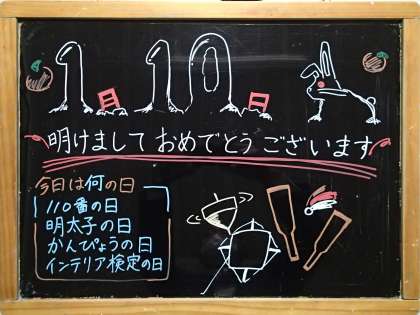 1月10日
明けまして おめでとう ございます
今日は何の日
110番の日
明太子の日
かんぴょうの日
インテリア検定の日